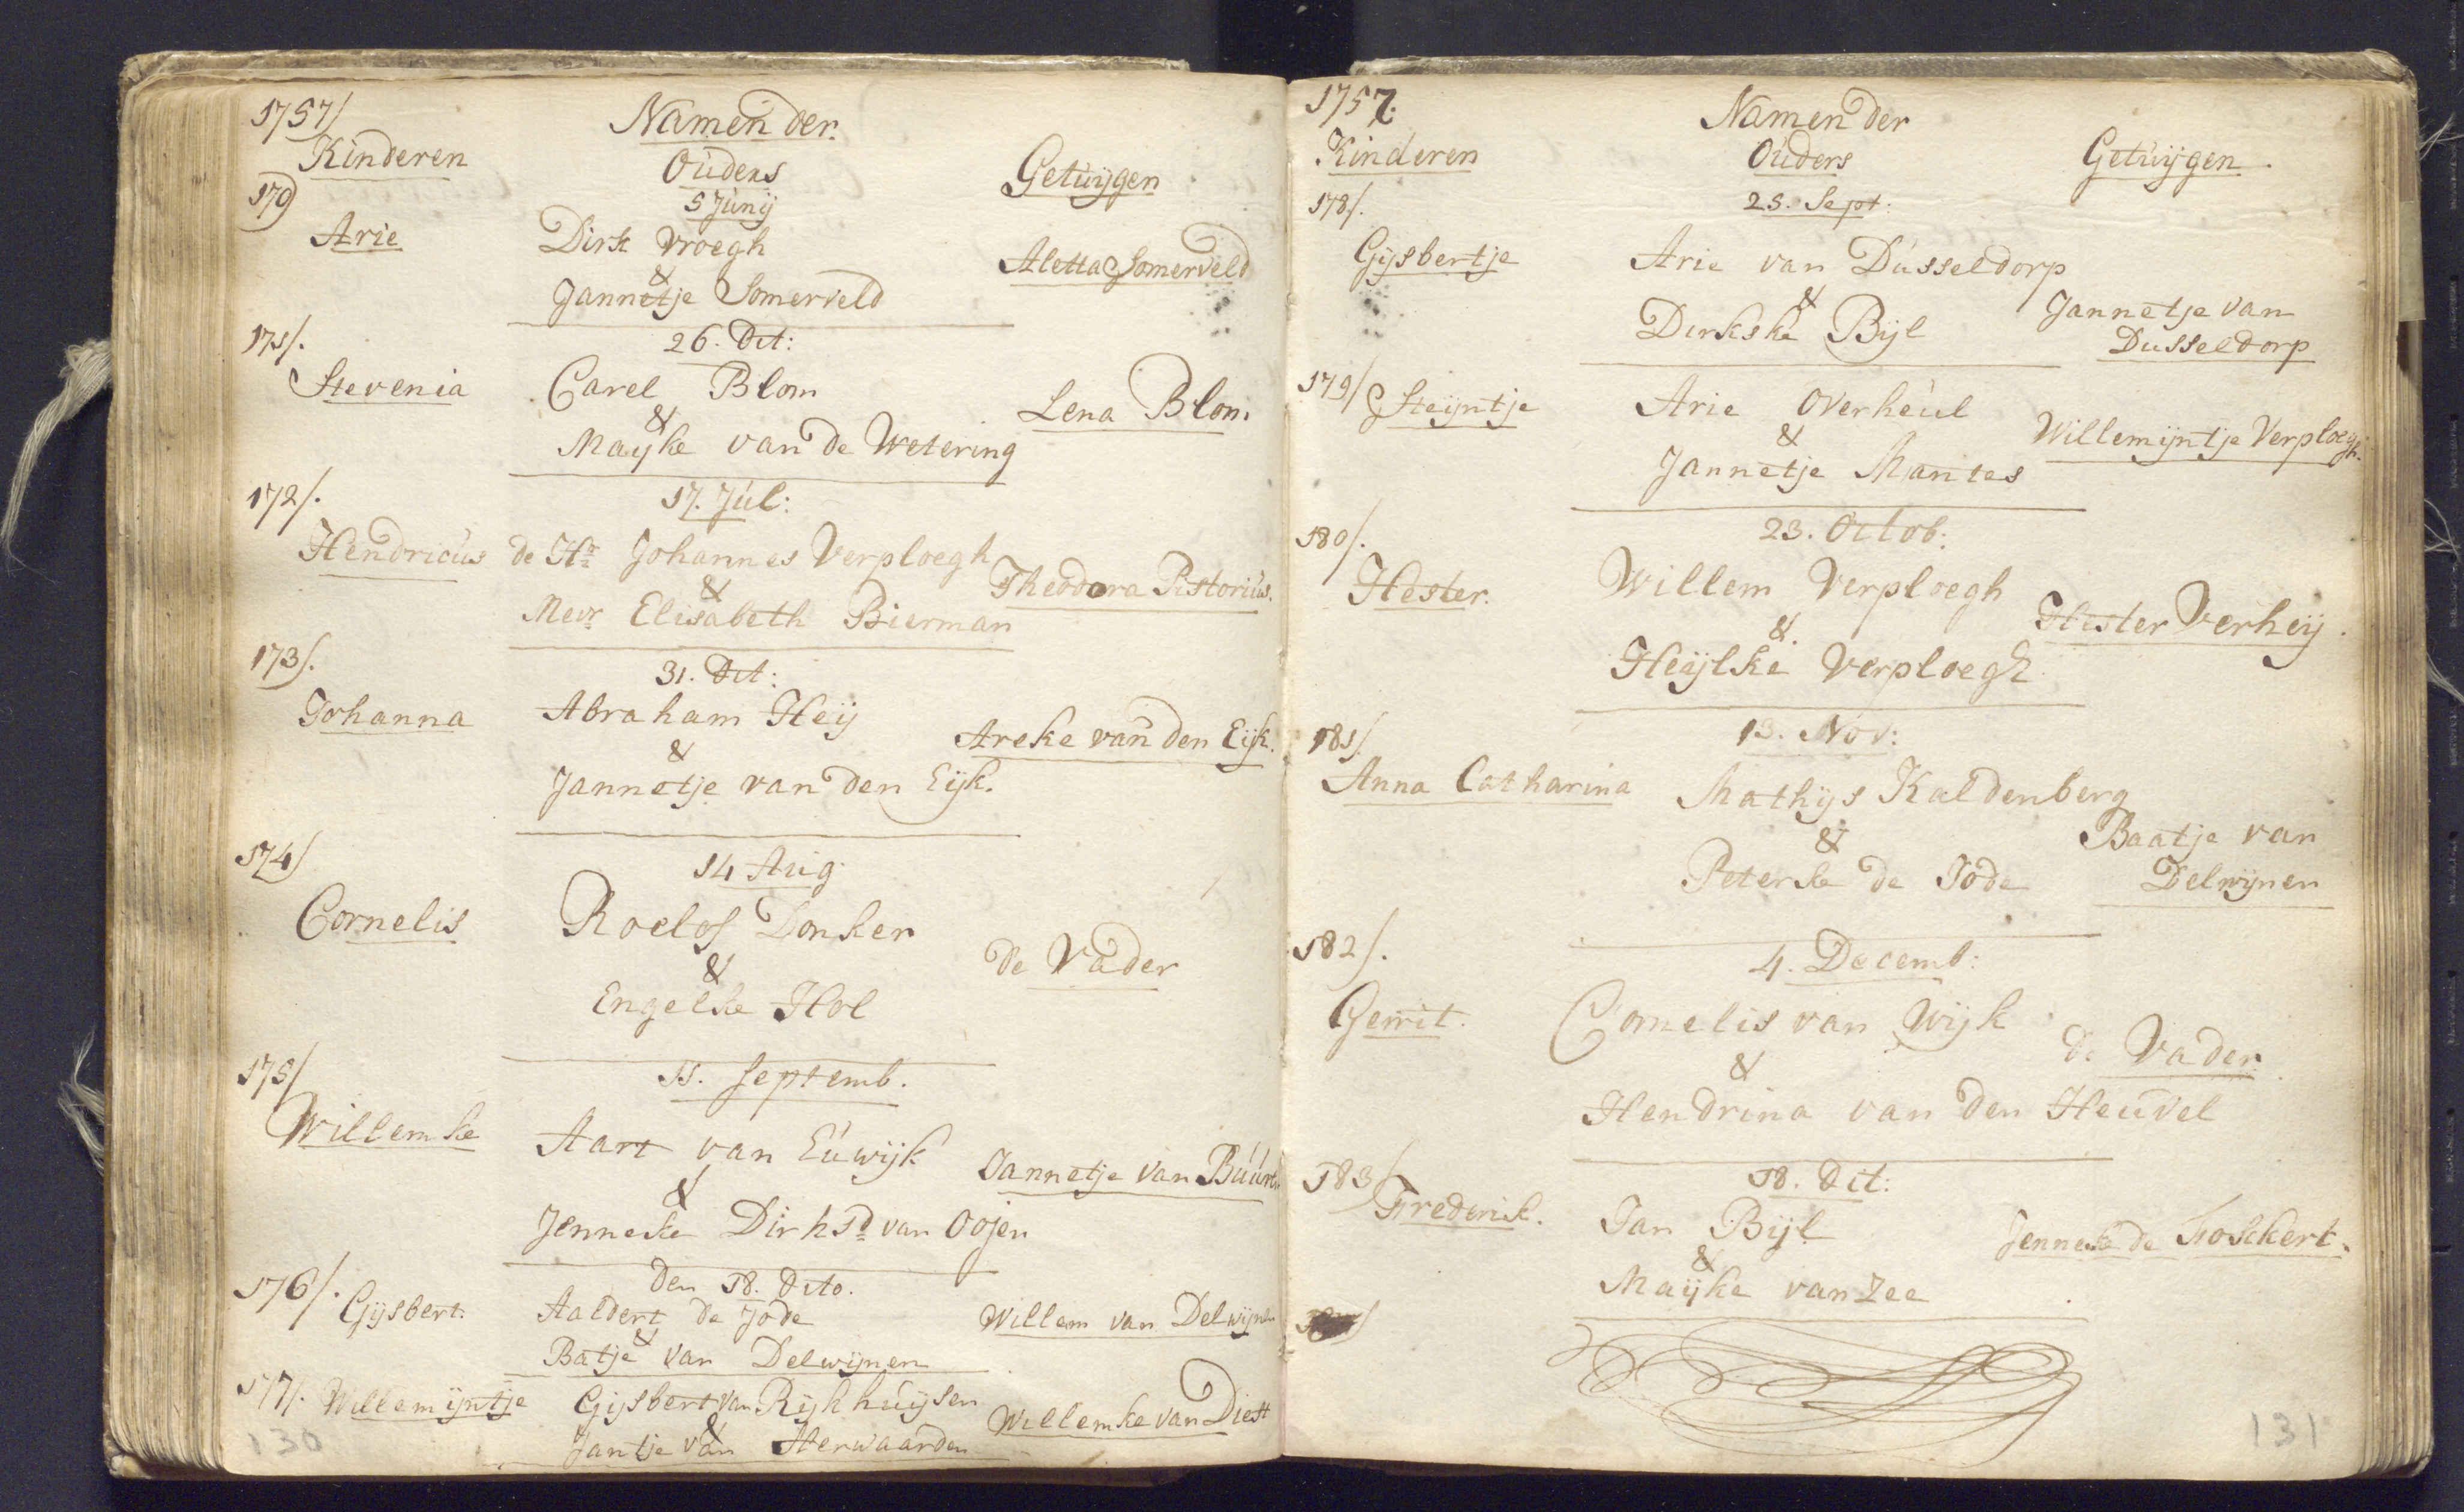 1757/
Namen der
Kinderen
Ouders
Getuijgen
170
5 Junij
Arie
Dirk Vroegh
&
Jannetje Somerveld
Aletta Somerveld
171/.
26. Dit:
Stevenia
Carel Blom
&
Mayke van de Wetering
Lena Blom
172/.
17. Jul:
Hendricus
de Hr Johannes Verploegh
&
Mevr Elisabeth Bierman
Theodora Pistorius.
173/.
31. Dit:
Johanna
Abraham Heij
&
Jannetje van den Eijk.
Areke van den Eijk.
174/
14 Aug
Cornelis
Roelof Donker
&
Engelke Hol
de Vader
175/
11. Septemb.
Willemke
Aart van Euwijk
&
Jenneke Dirksd van Oojen
Jannetje van
176/.
den 18. Dito.
Gijsbert.
Aaldert de Jode
&
Batje van Delwijnen
Willem van Delwijnen
177/.
Willemijntje
Gijsbert van Rijkhuijsen
&
Jantje van Herwaarden
Willemke van Diest
130
1757.
Namen der
Kinderen
Ouders
Getuijgen.
178/.
25. Sept:
Gijsbertje
Arie van Dusseldorp
&
Dirkske Bijl
Jannetje van
Dusseldorp
179/
Steijntje
Arie Overheul
&
Jannetje Mantes
Willemijntje Verploegh.
180/.
23. Octob:
Hester.
Willem Verploegh
&.
Heijlke Verploegh
Hester Verheij.
181/.
13. Nov:
Anna Catharina
Mathijs Kaldenberg
&
Peterke de Jode
Baatje van
Delwijnen
182/.
4. Decemb:
Gerrit.
Cornelis van Wijk
&
Hendrina van den Heuvel
de Vader.
183/
18. Dit:
Frederik.
Jan Bijl
&
Maijke van Zee
Jenneke de Foskert.
131